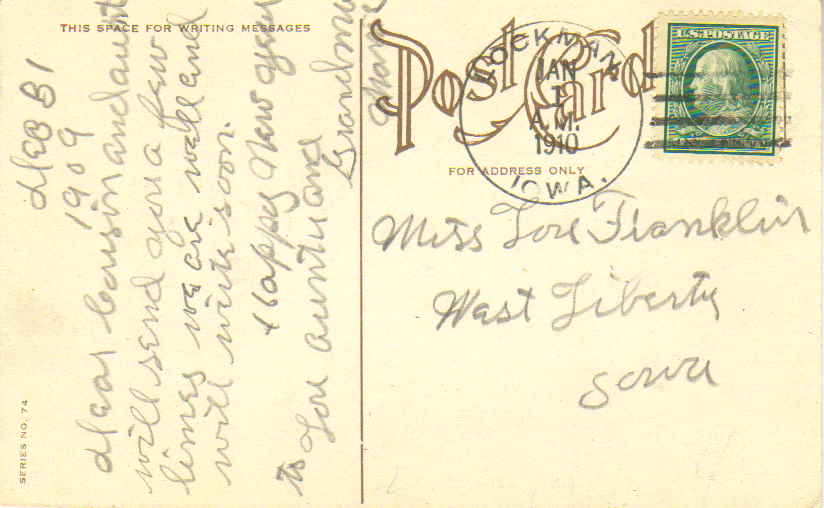 THIS SPACE FOR WRITING MESSAGES
Dec 31
1909
Dear Cousin and aunt
will send you a few
limes we are well and
will write soon.
Happy New year
to Lou aunty and
Grandma
Post Card
FOR ADDRESS ONLY
LOCKMAN
JAN
1
A.M.
1910
IOWA.
U.S. POSTAGE
Miss Lou Franklin
West Liberty
Iowa
SERIES NO. 74